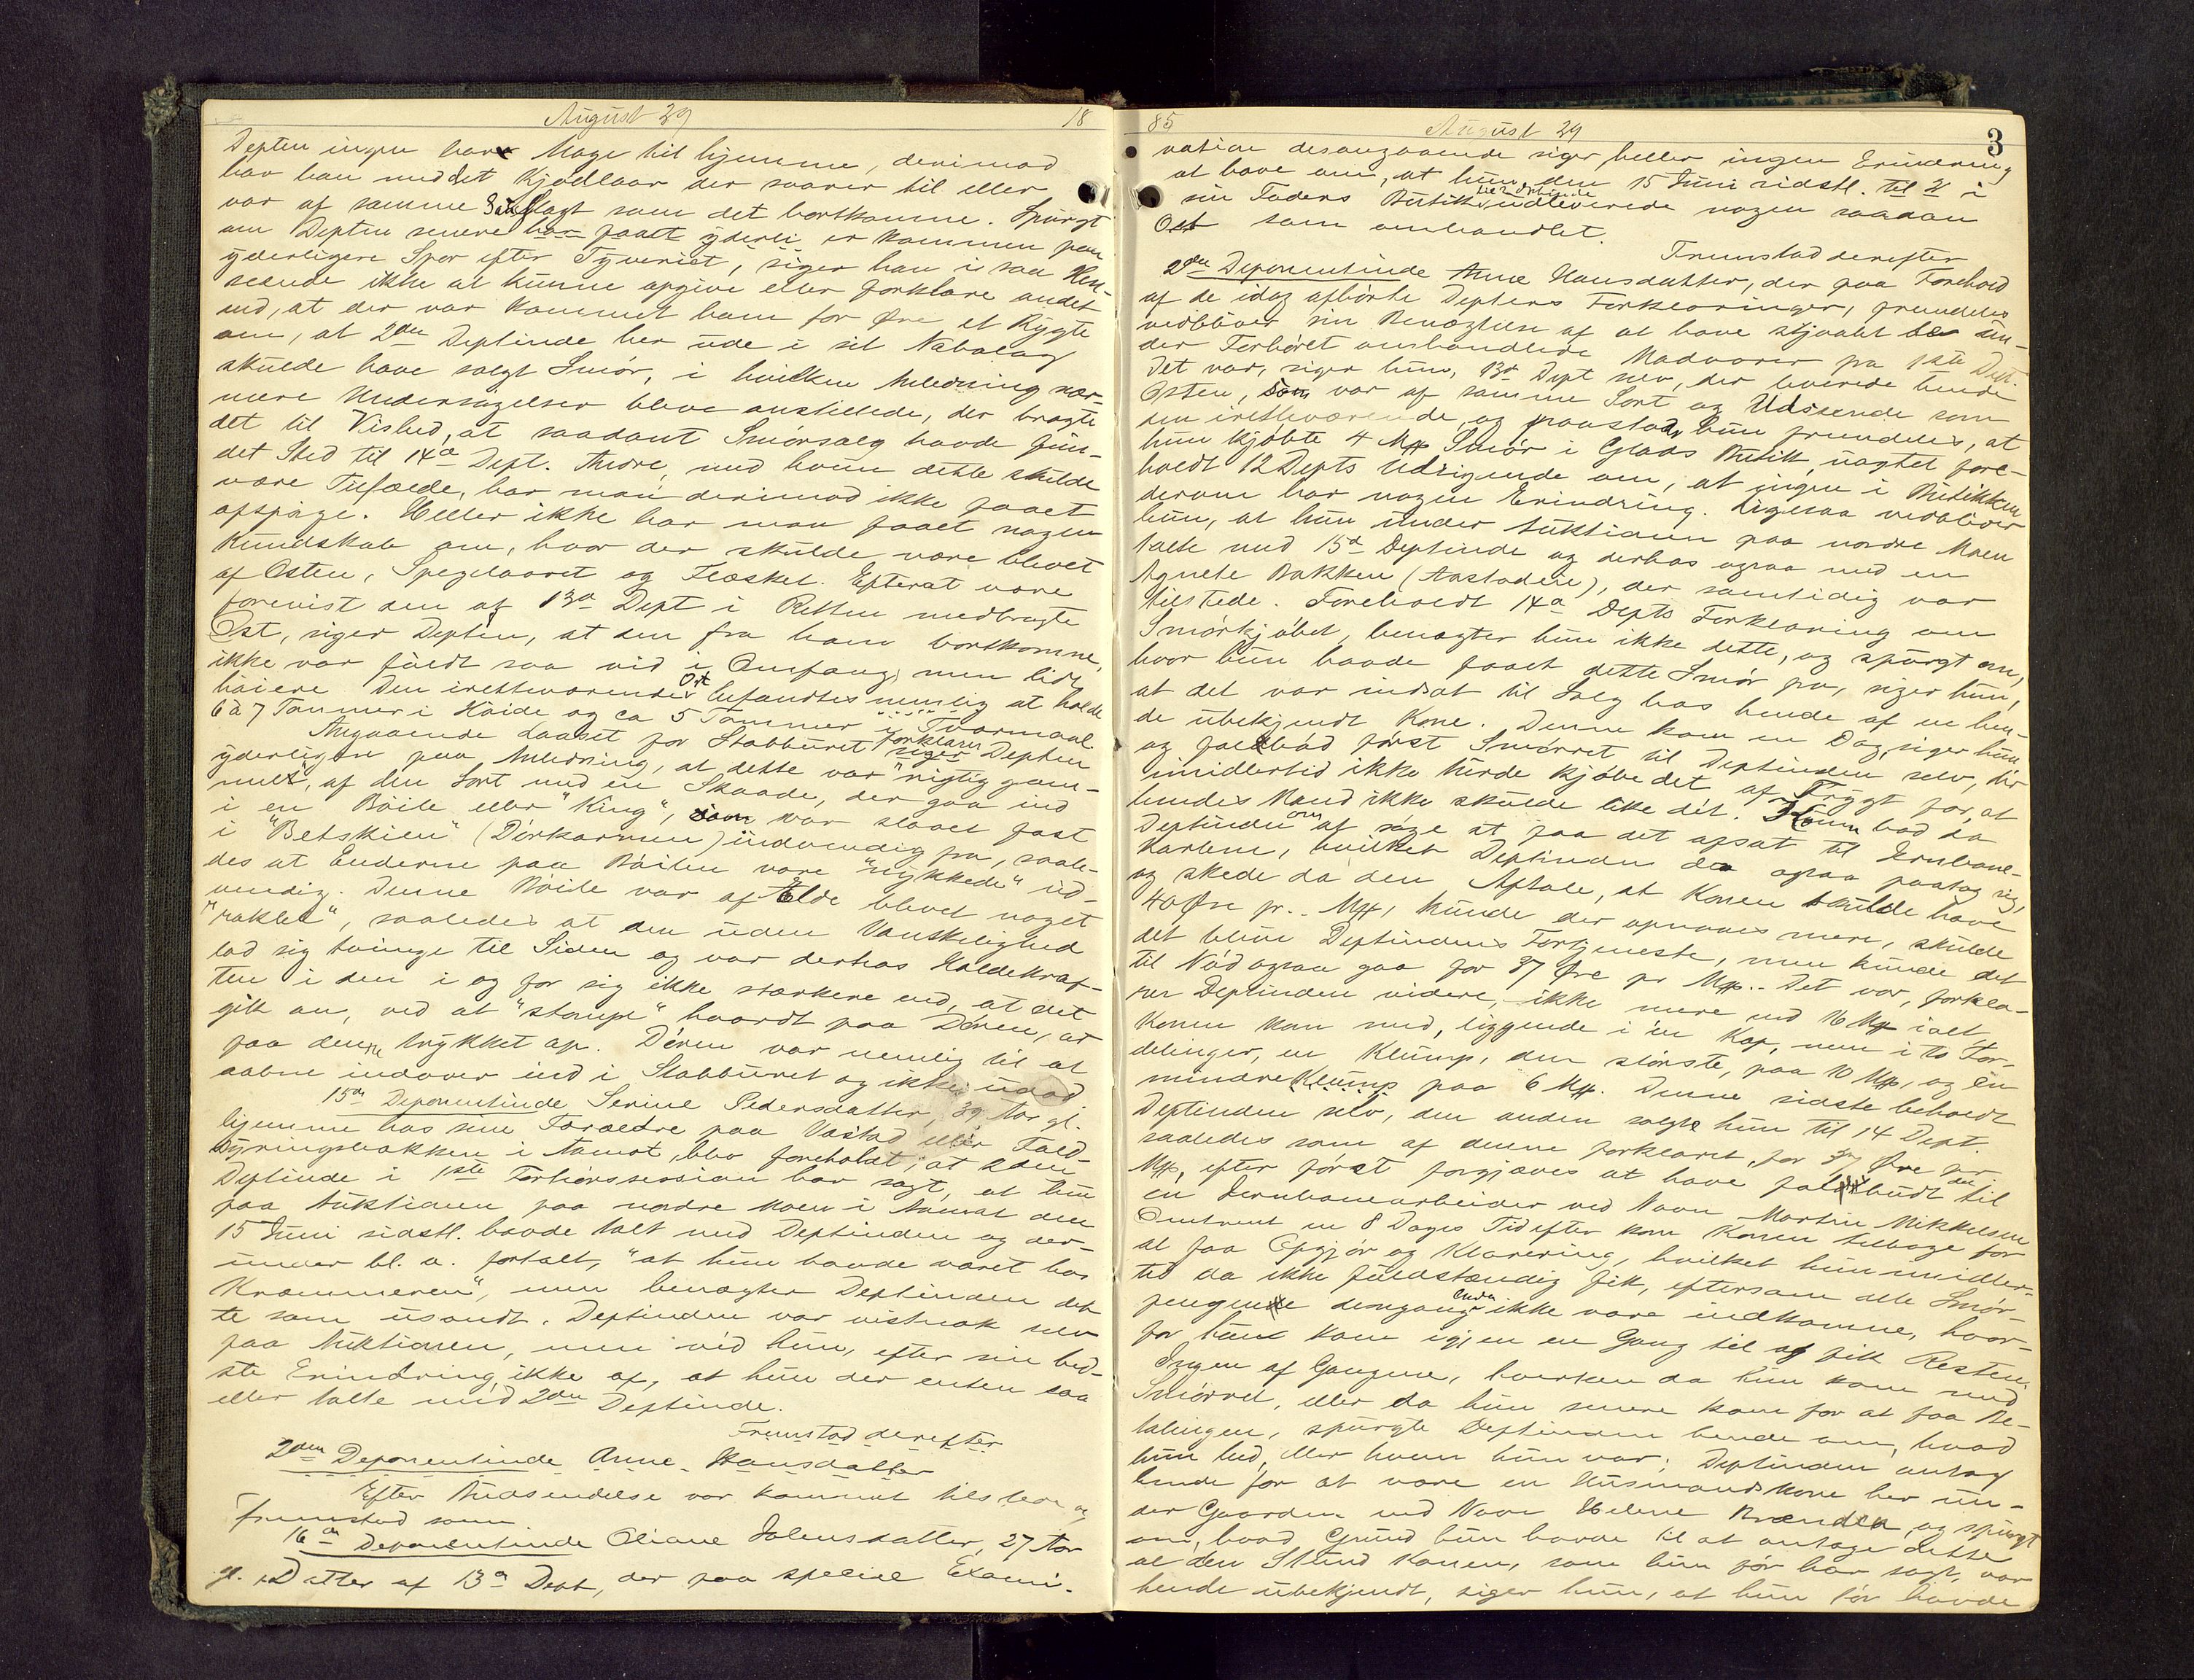 August 29 18
Depten ingen Mage til hjemme, derimod
har han med det Kjødlaar der svarer til eller
var af samme Slagt som det bortkomne. Spurgt
om Depten senere har faaet yderli er kommen paa
yderligere Spor efter Tyveriet, siger han i saa Hen-
seende ikke at kunne opgive eller forklare andet
end, at der var kommet ham for Øre et Rygte
om, at 2den Deptinde her ude i sit Nabolag
skulde have solgt Smør, i hvilken Anledning nær-
mere Undersøgelser bleve anstillede, der bragte
det til Vished, at saadant Smørsalg havde fun-
det Sted til 14de Dept. Andre, med hvem dette skulde
være Tilfælde, har man derimod ikke faaet
opspage. Heller ikke har man faaet nogen
Kundskab om, hvor der skulde være blevet
af Osten, Spegelaaret og Flæsket. Efterat være
forevist den af 13de Dept i Retten medbragte
Ost, siger Depten, at den fra ham bortkomne,
ikke var fuldt saa vid i Omfang, men lidt
høiere. Den iretteværende Ost befandtes nemlig at holde
6 à 7 Tommer i Høide og ca 5 Tommer i Tværmaal.
Angaaende Laaset for Stabburet forklarer siger Depten
yderligere paa Anledning, at dette var "rigtig gam-
melt", af den Sort med en Skaade, der gaa ind
i en Bøile eller "King", som var slaaet fast
i "Betskien" (Dørkarmen) indvendig fra, saale-
des at Enderne paa Bøilen vare "nykkede" ud-
vendig. Denne Bøile var af Elde blevet noget
"raklet", saaledes at den uden Vanskelighed
lod sig tvinge til Siden og var derhos Holdekraf-
ten i den i og for sig ikke stærkere end, at det
gik an, ved at "stampe" haardt paa Døren, at
faa denne trykket op. Døren var nemlig til at
aabne indover ind i Stabburet og ikke udad
15de Deponentinde Serine Pedersdatter, 39 Aar gl.
hjemme hos sine Forældre paa Vastad eller Fald-
dyringsbakken i Aamot, blev foreholdt, at 2den
Deptinde i 1ste Forhørssession har sagt, at hun
paa Auktionen paa nordre Moen i Aamot den
15 Juni sidstl. havde talt med Deptinden og der-
under bl. a. fortalt, "at hun havde været hos
Kræmmeren", men benægter Deptinden det-
te som usandt. Deptinden var vistnok selv
paa Auktionen, men ved hun, efter sin bed-
ste Erindring ikke af, at hun der enten saa
eller talte med 2den Deptinde.
Fremstod derefter
2den Deponentinde Anne Hansdatter
Efter Indsendelse var kommet tilstede og
fremstod som
16de Deponentinde Oliane Johnsdatter, 27 Aar
gl. Datter af 13de Dept, der paa speciel Exami-
85 August 29 3
nation desangaaende siger heller ingen Erindring
at have om, at hun den 15 Juni sidstl. til N i
sin Faders Butik til 2. Deptinde udleverede nogen saadan
Ost som omhandlet.
Fremstod derefter
2den Deponentinde Anne Hansdatter, der paa Forehold
af de idag afhørte Depters Forklaringer, fremdeles
vedbliver sin Benægtelse af at have stjaalet de un-
der Forhøret omhandlede Madvarer fra 1ste Dept.
Det var, siger hun, 13de Dept selv, der leverede hende
Osten, som var af samme Sort og Udseende som
den iretteværende og paastaar hun fremdeles, at
hun kjøbte 4 Mk Smør i Glads Butik, uagtet fore-
holdt 12 Depts Udsigende om, at ingen i Butikken
derom har nogen Erindring. Ligesaa vedbliver
hun, at hun under Auktionen paa nordre Moen
talte med 15de Deptinde og derhos ogsaa med en
Agnete Bakken (Aastadeie), der samtidig var
tilstede. Foreholdt 14de Depts Forklaring om
Smørkjøbet, benægter hun ikke dette, og spurgt om,
hvor hun havde faaet dette Smør fra, siger hun,
at det var indsat til Salg hos hende af en hen-
de ubekjendt Kone. Denne kom en Dag, siger hun,
og falbød først Smørret til Deptinden selv, der
imidlertid ikke turde kjøbe det af Frygt for, at
hendes Mand ikke skulde like det. Konen bad da
Deptinden om at søge at faa det afsat til Jernbane-
karlene, hvilket Deptinden da ogsaa paatog sig,
og skede da den Aftale, at Konen skulde have
40 Øre pr. Mk, kunde der opnaaes mere, skulde
det blive Deptindens Fortjeneste, men kunde det
til Nød ogsaa gaa for 37 Øre pr Mk. - Det var, forkla-
rer Deptinden videre, ikke mere end 16 Mk ialt,
Konen kom med, liggende i en Kop, men i to For-
delinger, en Klump, den største, paa 10 Mk, og en
mindre Klump paa 6 Mk. Denne sidste beholdt
Deptinden selv, den anden solgte hun til 14 Dept.
saaledes som af denne forklaret, for 37 Øre pr
Mk, efter først forgjæves at have falbudt den til
en Jernbanearbeider ved Navn Martin Mikkelsen
Omtrent en 8 Dages Tid efter kom Konen tilbage for
at faa Opgjør og Klarering, hvilket hun imidler-
tid da ikke fuldstændig fik, eftersom alle Smør-
pengene dengang endu ikke vare indkomne, hvor-
for hun kom igjen en Gang til og fik Resten.
Ingen af Gangene, hverken da hun kom med
Smørret, eller da hun senere kom for at faa Be-
talingen, spurgte Deptinden hende om, hvad
hun hed, eller hvem hun var; Deptinden antog
hende for at være en Husmandskone her un-
der Gaarden med Navn Helene Brænden og spurgt
om, hvad Grund hun havde til at antage dette
al den Stund Konen, som hun før har sagt, var
hende ubekjendt, siger hun, at hun før havde